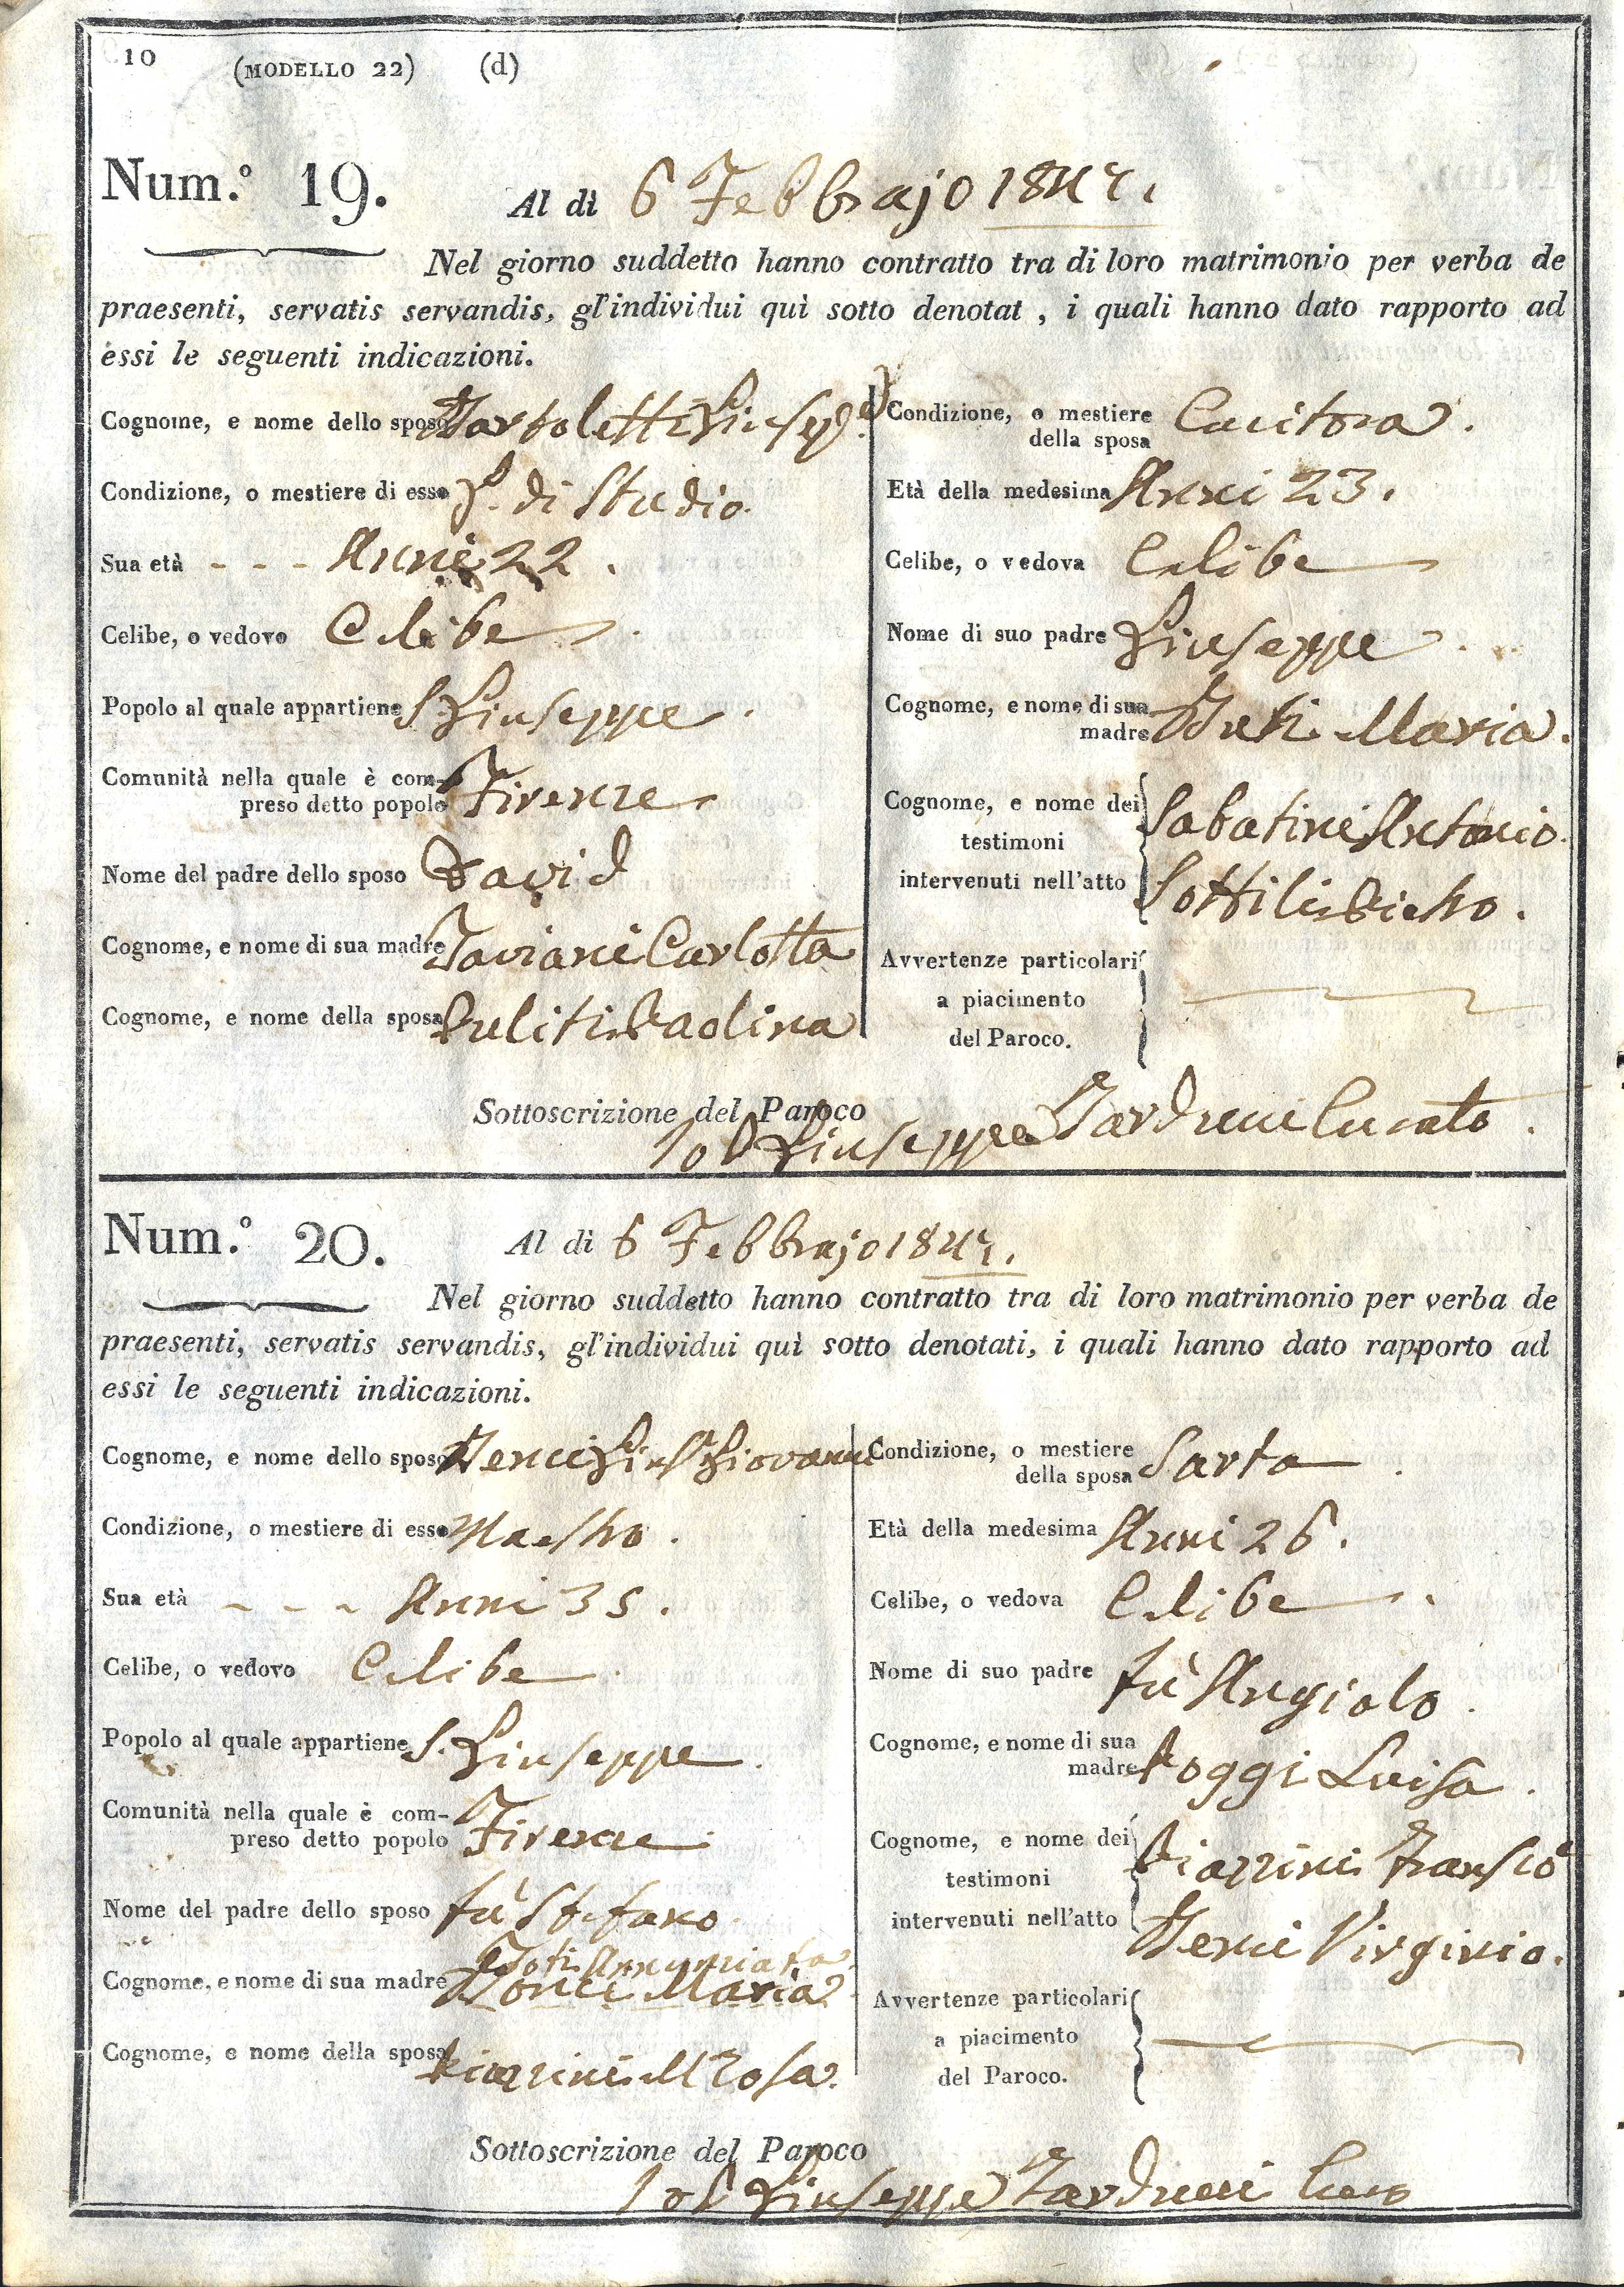 10 (MODELLO 22) (d)
Num.º 19. Al dì 6 Febbrajo 1845.
Nel giorno suddetto hanno contratto tra di loro matrimonio per verba de
praesenti, servatis servandis, gl'individui quì sotto denotat , i quali hanno dato rapporto ad
essi le seguenti indicazioni.
Cognome, e nome dello sposo Bartoletti Giuseppe
Condizione, o mestiere di esso di Studio.
Sua età - - - Anni 22.
Celibe, o vedovo Celibe.
Popolo al quale appartiene S. Giuseppe.
Comunità nella quale è com-
preso detto popolo Firenze
Nome del padre dello sposo David
Cognome, e nome di sua madre Taviani Carlotta
Cognome, e nome della sposa Puliti Paolina
Condizione, o mestiere
della sposa Cucitora.
Età della medesima Anni 23.
Celibe, o vedova Celibe
Nome di suo padre Giuseppe.
Cognome, e nome di sua
madre Maria.
Cognome, e nome dei
testimoni
intervenuti nell'atto
Sabatini Antonio.
Sottili Pietro.
Avvertenze particolari
a piacimento
del Paroco.
Sottoscrizione del Paroco
Giuseppe Tarducci Curato.
Num.º 20. Al dì 6 Febbrajo 1845.
Nel giorno suddetto hanno contratto tra di loro matrimonio per verba de
praesenti, servatis servandis, gl'individui quì sotto denotati, i quali hanno dato rapporto ad
essi le seguenti indicazioni.
Cognome, e nome dello sposo Benci Gius. Giovanni
Condizione, o mestiere di esso Maestro.
Sua età - - - Anni 35.
Celibe, o vedovo Celibe.
Popolo al quale appartiene S. Giuseppe.
Comunità nella quale è com-
preso detto popolo Firenze.
Nome del padre dello sposo fù Stefano
Annunziata
Cognome, e nome di sua madre Maria
Cognome, e nome della sposa Piazzini M Rosa.
Condizione, o mestiere
della sposa Sarta.
Età della medesima Anni 26.
Celibe, o vedova Celibe.
Nome di suo padre fù Angiolo.
Cognome, e nome di sua
madre Poggi Luisa.
Cognome, e nome dei
testimoni
intervenuti nell'atto
Piazzini Fransco
Benci Virginio.
Avvertenze particolari
a piacimento
del Paroco.
Sottoscrizione del Paroco
Giuseppe Tarducci Curo